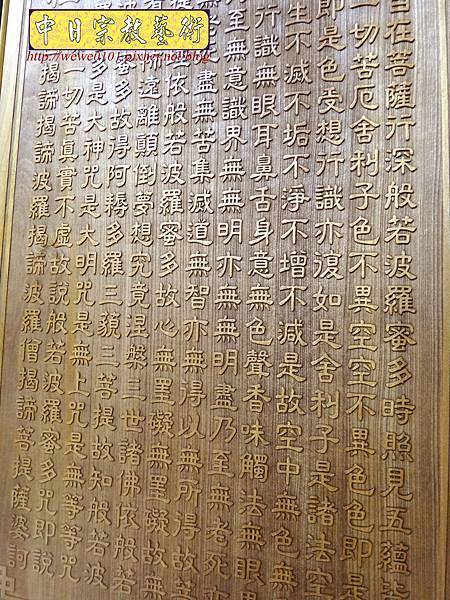 中日宗教藝術
http://wewell0101.pixnet.net/blog
自在菩薩行深般若波羅蜜多時照見五蘊皆
一切苦厄舍利子色不異空空不異色色即是
即是色受想行識亦復如是舍利子是諸法空
生不滅不垢不淨不增不減是故空中無色無
行識無眼耳鼻舌身意無色聲香味觸法無眼
至無意識界無無明亦無無明盡乃至無老死
老死盡無苦集滅道無智亦無得以無所得故菩
依般若波羅蜜多故心無罣礙無罣礙故
遠離顛倒夢想究竟涅槃三世諸佛依般若
蜜多故得阿耨多羅三藐三菩提故知般若波
多是大神咒是大明咒是無上咒是無等等咒
一切苦真實不虛故說般若波羅蜜多咒即說
揭諦揭諦波羅揭諦波羅僧揭諦菩提薩婆訶